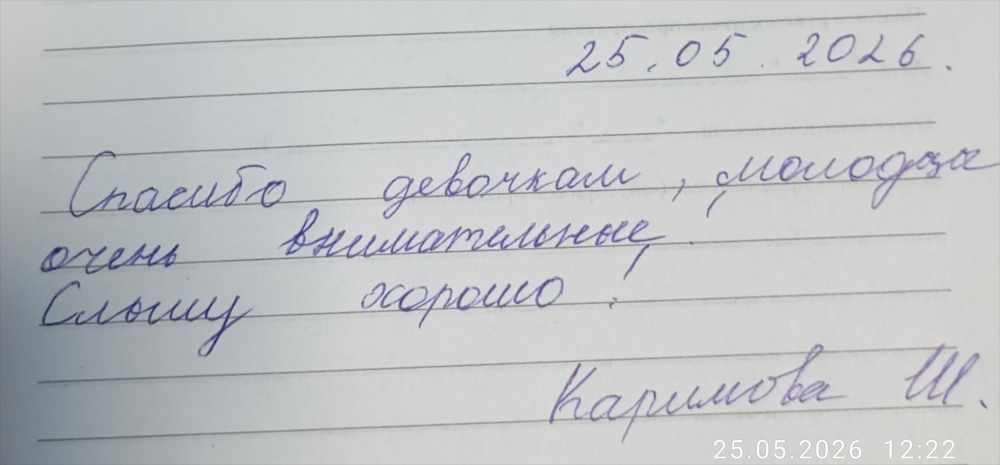 25.05.2026.
Спасибо девочкам, молодцы
очень внимательные!
Слышу хорошо!
Каримова Ш.
25.05.2026 12:22